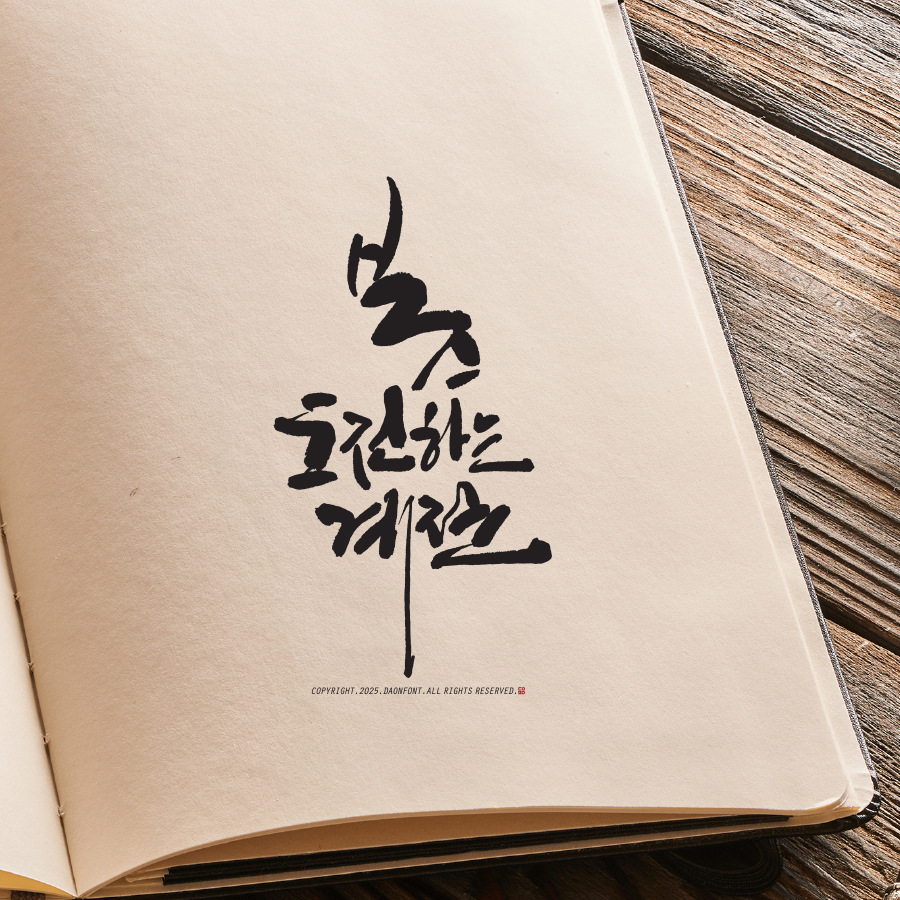 봄
호전하는
계절
COPYRIGHT.2025.DAONFONT.ALL RIGHTS RESERVED.